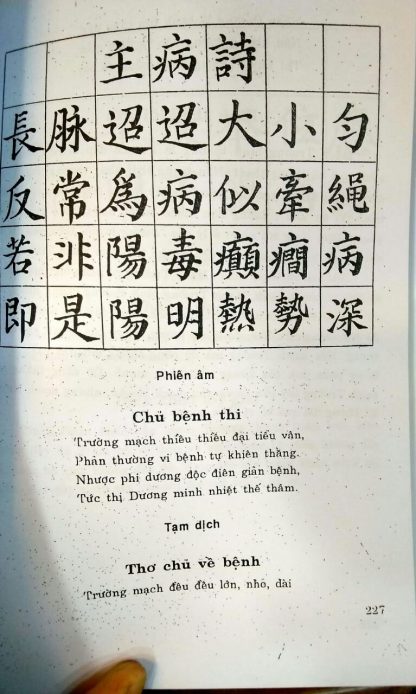 主病詩
長脉迢迢大小勻
反常為病似牽繩
若非陽毒癲癇病
即是陽明熱勢深
Phiên âm
Chủ bệnh thi
Trường mạch thiều thiều đại tiểu vân,
Phản thường vi bệnh tự khiên thằng.
Nhược phi dương độc điên giản bệnh,
Tức thị Dương minh nhiệt thế thâm.
Tạm dịch
Thơ chủ về bệnh
Trường mạch đều đều lớn, nhỏ, dài
227